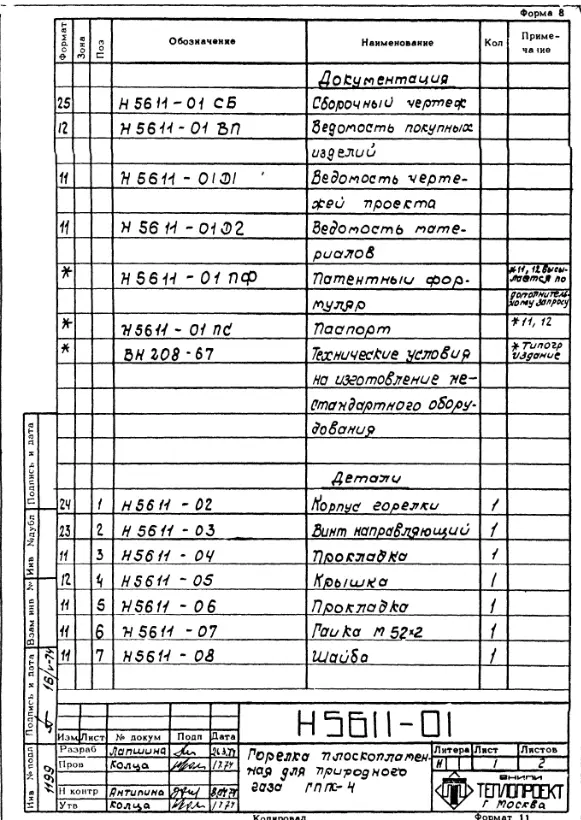 Форма 8
Формат Зона Поз Обозначение Наименование Кол Приме-
чание
Документация
25 Н5611-01 СБ Сборочный чертеж
12 Н5611-01 ВП Ведомость покупных
изделий
11 Н5611-01Д1 Ведомость черте-
жей проекта
11 Н5611-01Д2 Ведомость мате-
риалов
* Н5611-01 ПФ Патентный фор- *11, 12 Высы-
лается по
муляр дополнитель-
ному запросу
* Н5611-01 ПС Паспорт *11, 12
* ВН 208-67 Технические условия * Типогр
издание
на изготовление не-
стандартного обору-
дования
Детали
24 1 Н5611-02 Корпус горелки 1
23 2 Н5611-03 Винт направляющий 1
11 3 Н5611-04 Прокладка 1
12 4 Н5611-05 Крышка 1
11 5 Н5611-06 Прокладка 1
11 6 Н5611-07 Гайка М 52×2 1
11 7 Н5611-08 Шайба 1
Подпись и дата
Инв №дубл
Взам инв №
Подпись и дата 16/V-74
Инв №подл 1199
Изм Лист № докум Подп Дата
Разраб Лапшина
Пров Колца
Н контр Антипина
Утв Колца
Н5611-01
Горелка плоскопламен-
ная для природного
газа ГПП-4
Литера Лист Листов
И 1 2
ВНИПИ
ТЕПЛОПРОЕКТ
г Москва
Копировал Формат 11